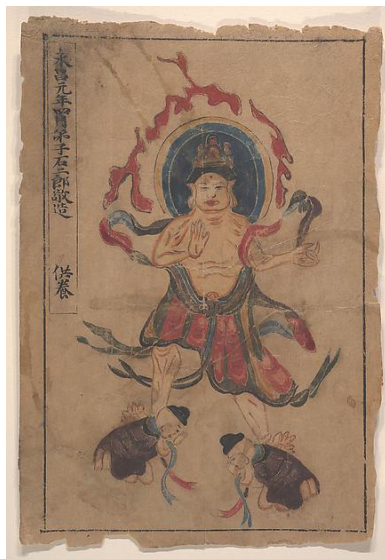 永昌元年四月弟子石三郎敬造 供養